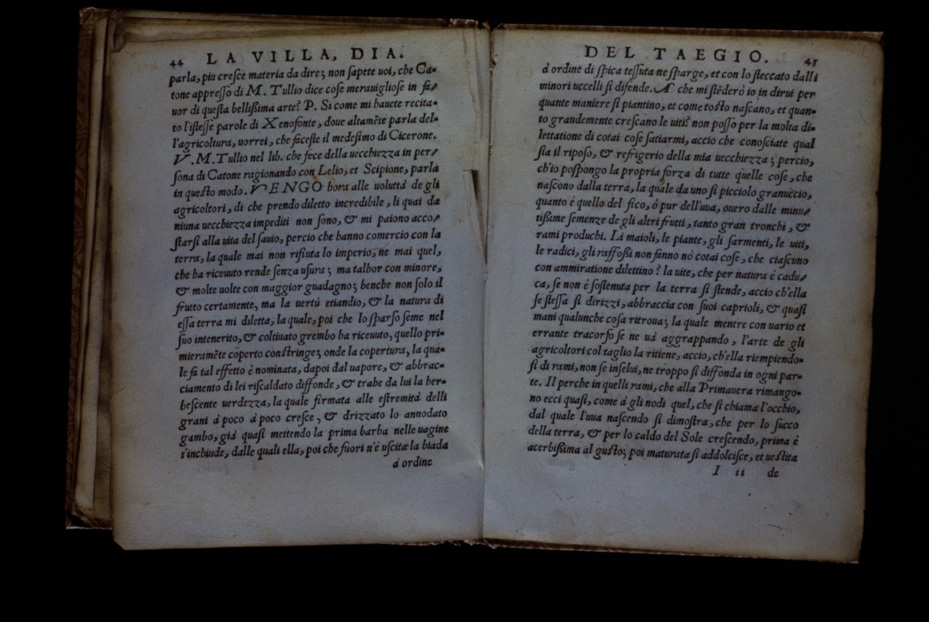 44 LA VILLA, DIA.
parla, piu cresce materia da dire; non sapete uoi, che Ca-
tone appresso di M. Tullio dice cose merauigliose in fa/
uor di questa bellissima arte? P. Si come mi hauete recita-
to l'istesse parole di Xenofonte, doue altamēte parla del-
l'agricoltura, uorrei, che faceste il medesimo di Cicerone.
V. M. Tullio nel lib. che fece della uecchiezza in per/
sona di Catone ragionando con Lelio, et Scipione, parla
in questo modo. VENGO hora alle uoluttà de gli
agricoltori, di che prendo diletto incredibile, li quai da
niuna uecchiezza impediti non sono, & mi paiono acco/
starsi alla uita del sauio, percio che hanno comercio con la
terra, la quale mai non rifiuta lo imperio, ne mai quel,
che ha riceuuto rende senza usura; ma talhor con minore,
& molte uolte con maggior guadagno; benche non solo il
frutto certamente, ma la uertù etiandio, & la natura di
essa terra mi diletta, la quale, poi che lo sparso seme nel
suo intenerito, & coltiuato grembo ha riceuuto, quello pri-
mieramēte coperto constringe; onde la copertura, la qua-
le fa tal effetto è nominata, dapoi dal uapore, & abbrac-
ciamento di lei riscaldato diffonde, & trahe da lui la her-
bescente uerdezza, la quale firmata alle estremità delli
grani à poco à poco cresce, & drizzato lo annodato
gambo, già quasi mettendo la prima barba nelle uagine
s'inchiude, dalle quali ella, poi che fuori n'è uscita la biada
à ordine
DEL TAEGIO. 45
à ordine di spica tessuta ne sparge, et con lo steccato dalli
minori uccelli si difende. A che mi stēderò io in dirui per
quante maniere si piantino, et come tosto nascano, et quan-
to grandemente crescano le uiti? non posso per la molta di-
lettatione di cotai cose satiarmi, accio che conosciate qual
sia il riposo, & refrigerio della mia uecchiezza; percio,
ch'io pospongo la propria forza di tutte quelle cose, che
nascono dalla terra, la quale da uno sì picciolo granuccio,
quanto è quello del fico, ò pur dell'uua, ouero dalle minu/
tissime semenze de gli altri frutti, tanto gran tronchi, &
rami produchi. Li maioli, le piante, gli sarmenti, le uiti,
le radici, gli raffossi non fanno nò cotai cose, che ciascuno
con ammiratione dilettino? la uite, che per natura è cadu/
ca, se non è sostenuta per la terra si stende, accio ch'ella
se stessa si dirizzi, abbraccia con suoi caprioli, & quasi
mani qualunche cosa ritroua; la quale mentre con uario et
errante tracorso se ne uà aggrappando, l'arte de gli
agricoltori col taglio la ritiene, accio, ch'ella riempiendo-
si di rami, non se inselui, ne troppo si diffonda in ogni par-
te. Il perche in quelli rami, che alla Primauera rimango-
no ecci quasi, come à gli nodi quel, che si chiama l'occhio,
dal quale l'uua nascendo si dimostra, che per lo succo
della terra, & per lo caldo del Sole crescendo, prima è
acerbissima al gusto; poi maturata si addolcisce, et uestita
I ii de